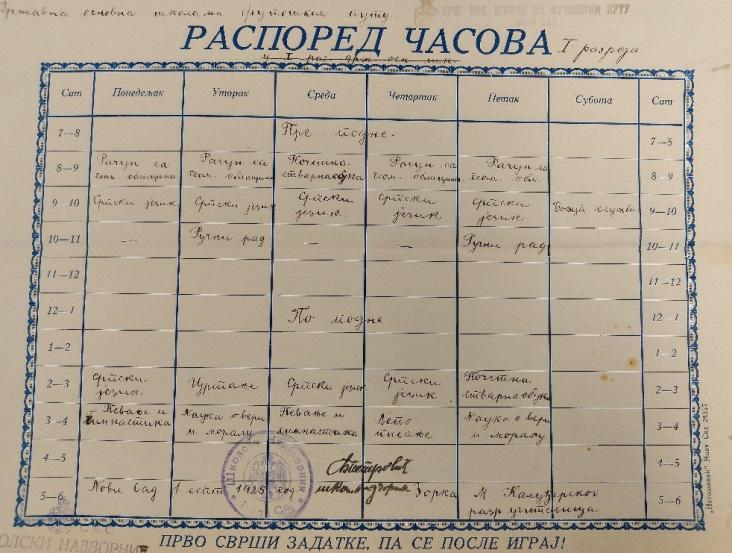 Државна основна школа на футошком путу.
ДРЖ. ОСН. ШКОЛА НА ФУТОШКОМ ПУТУ
НОВИ САД
РАСПОРЕД ЧАСОВА I разреда
у I раз. држ. осн. шк.
Сат Понедељак Уторак Среда Четвртак Петак Субота Сат
7—8 Пре подне. 7—8
8—9 Рачун са геом. облицима Рачун са геом. облицима Почетна стварна обука Рачун са геом. облицима Рачун са геом. обл. 8—9
9—10 Српски језик Српски језик Српски језик. Српски језик Српски језик Божја служба 9—10
10—11 — Ручни рад — — Ручни рад 10—11
11—12 11—12
12—1 По подне 12—1
1—2 1—2
2—3 Српски језик. Цртање Српски језик Српски језик Почетна стварна обука 2—3
3—4 Певање и гимнастика Наука о вери и моралу Певање и гимнастика Лепо писање Наука о вери и моралу 3—4
4—5 4—5
5—6 Нови Сад 1 септ. 1925 год школ. надзорник Зорка М Калуђерског разр. учитељица 5—6
ШКОЛСКИ НАДЗОРНИК
ОЛСКИ НАДЗОРНИК
ПРВО СВРШИ ЗАДАТКЕ, ПА СЕ ПОСЛЕ ИГРАЈ!